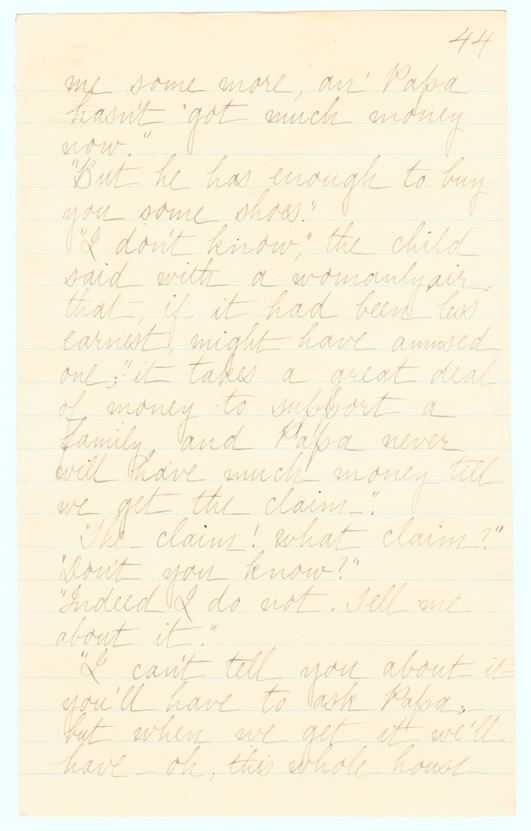 44
me some more, an' Papa
hasn't got much money
now."
"But he has enough to buy
you some shoes."
"I don't know," the child
said with a womanly air,
that, if it had been less
earnest, might have amused
one; "it takes a great deal
of money to support a
family and Papa never
will have much money till
we get the claim—".
"The claim! what claim?"
"Don't you know?"
"Indeed I do not. Tell me
about it."
"I can't tell you about it—
you'll have to ask Papa,
but when we get it we'll
have – oh, this whole house